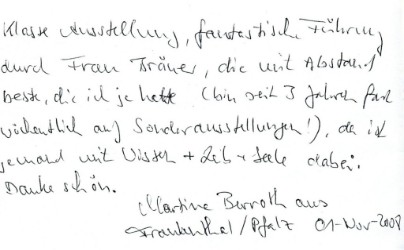 Klasse Ausstellung, fantastische Führung
durch Frau Bräuer, die mit Abstand
beste, die ich je hatte (bin seit 3 Jahren fast
wöchentlich auf Sonderausstellungen!), da ist
jemand mit Wissen + Leib + Seele dabei.
Danke schön.
Martine Burroth aus
Frankenthal/Pfalz 01-Nov-2008